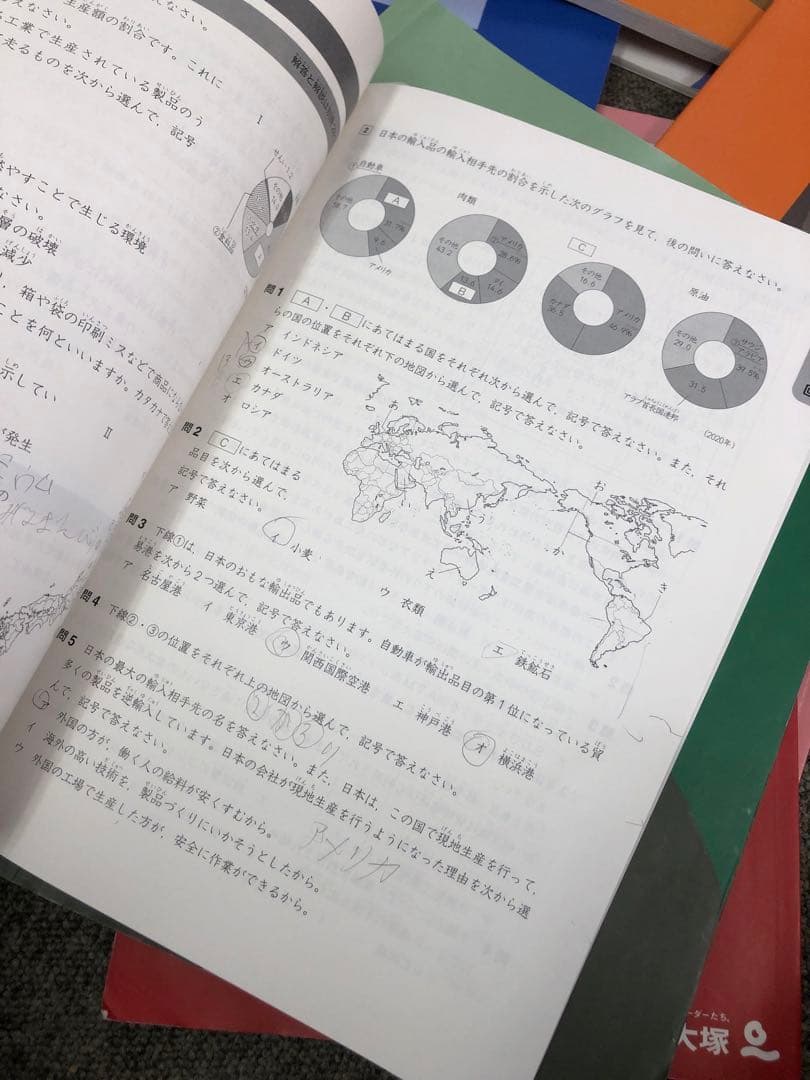 生産額の割合です。これに
工業で生産されている製品のう
走るものを次から選んで、記号
I
やすことで生じる環境
なさい。
層の破壊
減少
箱や袋の印刷ミスなどで商品に
ことを何といいますか。カタカナで
示してい
II
が発生
2 日本の輸入品の輸入相手先の割合を示した次のグラフを見て、後の問いに答えなさい。
①自動車
その他
A
9.6
アメリカ
肉類
その他
43.2
②アメリカ
28.6%
タイ
14.6
13.6
B
C
その他
16.6
カナダ
36.5
アメリカ
46.9%
原油
その他
29.0
③サウジアラビア
39.5%
31.5
アラブ首長国連邦
(2020年)
問1 A・Bにあてはまる国をそれぞれ次から選んで、記号で答えなさい。また、それ
らの国の位置をそれぞれ下の地図から選んで、記号で答えなさい。
ア インドネシア
イ ドイツ
ウ オーストラリア
エ カナダ
オ ロシア
あ
う
え
お
か
き
問2 Cにあてはまる
品目を次から選んで、
記号で答えなさい。
ア 野菜
イ 小麦
ウ 衣類
エ 鉄鉱石
問3 下線①は、日本のおもな輸出品でもあります。自動車が輸出品目の第1位になっている貿
易港を次から2つ選んで、記号で答えなさい。
ア 名古屋港 イ 東京港 ウ 関西国際空港 エ 神戸港 オ 横浜港
問4 下線②・③の位置をそれぞれ上の地図から選んで、記号で答えなさい。
問5 日本の最大の輸入相手先の名を答えなさい。また、日本は、この国で現地生産を行って、
多くの製品を逆輸入しています。日本の会社が現地生産を行うようになった理由を次から選
んで、記号で答えなさい。
アメリカ
ア 外国の方が、働く人の給料が安くすむから。
イ 海外の高い技術を、製品づくりにいかそうとしたから。
ウ 外国の工場で生産した方が、安全に作業ができるから。
大塚